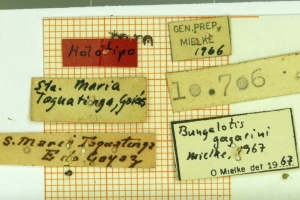 Holótipo
Sta. Maria
Taguatinga, Goiás
S. Maria Taguatinga
E. de Goyaz
GEN. PREP.
MIELKE
1966
10.706
Bungalotis
gagarini
Mielke, 1967
O Mielke det 1967